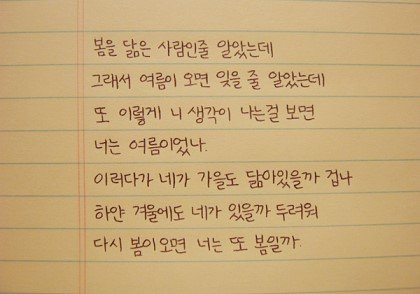 봄을 닮은 사람인줄 알았는데
그래서 여름이 오면 잊을 줄 알았는데
또 이렇게 니 생각이 나는걸 보면
너는 여름이었나.
이러다가 네가 가을도 닮아있을까 겁나
하얀 겨울에도 네가 있을까 두려워
다시 봄이오면 너는 또 봄일까.